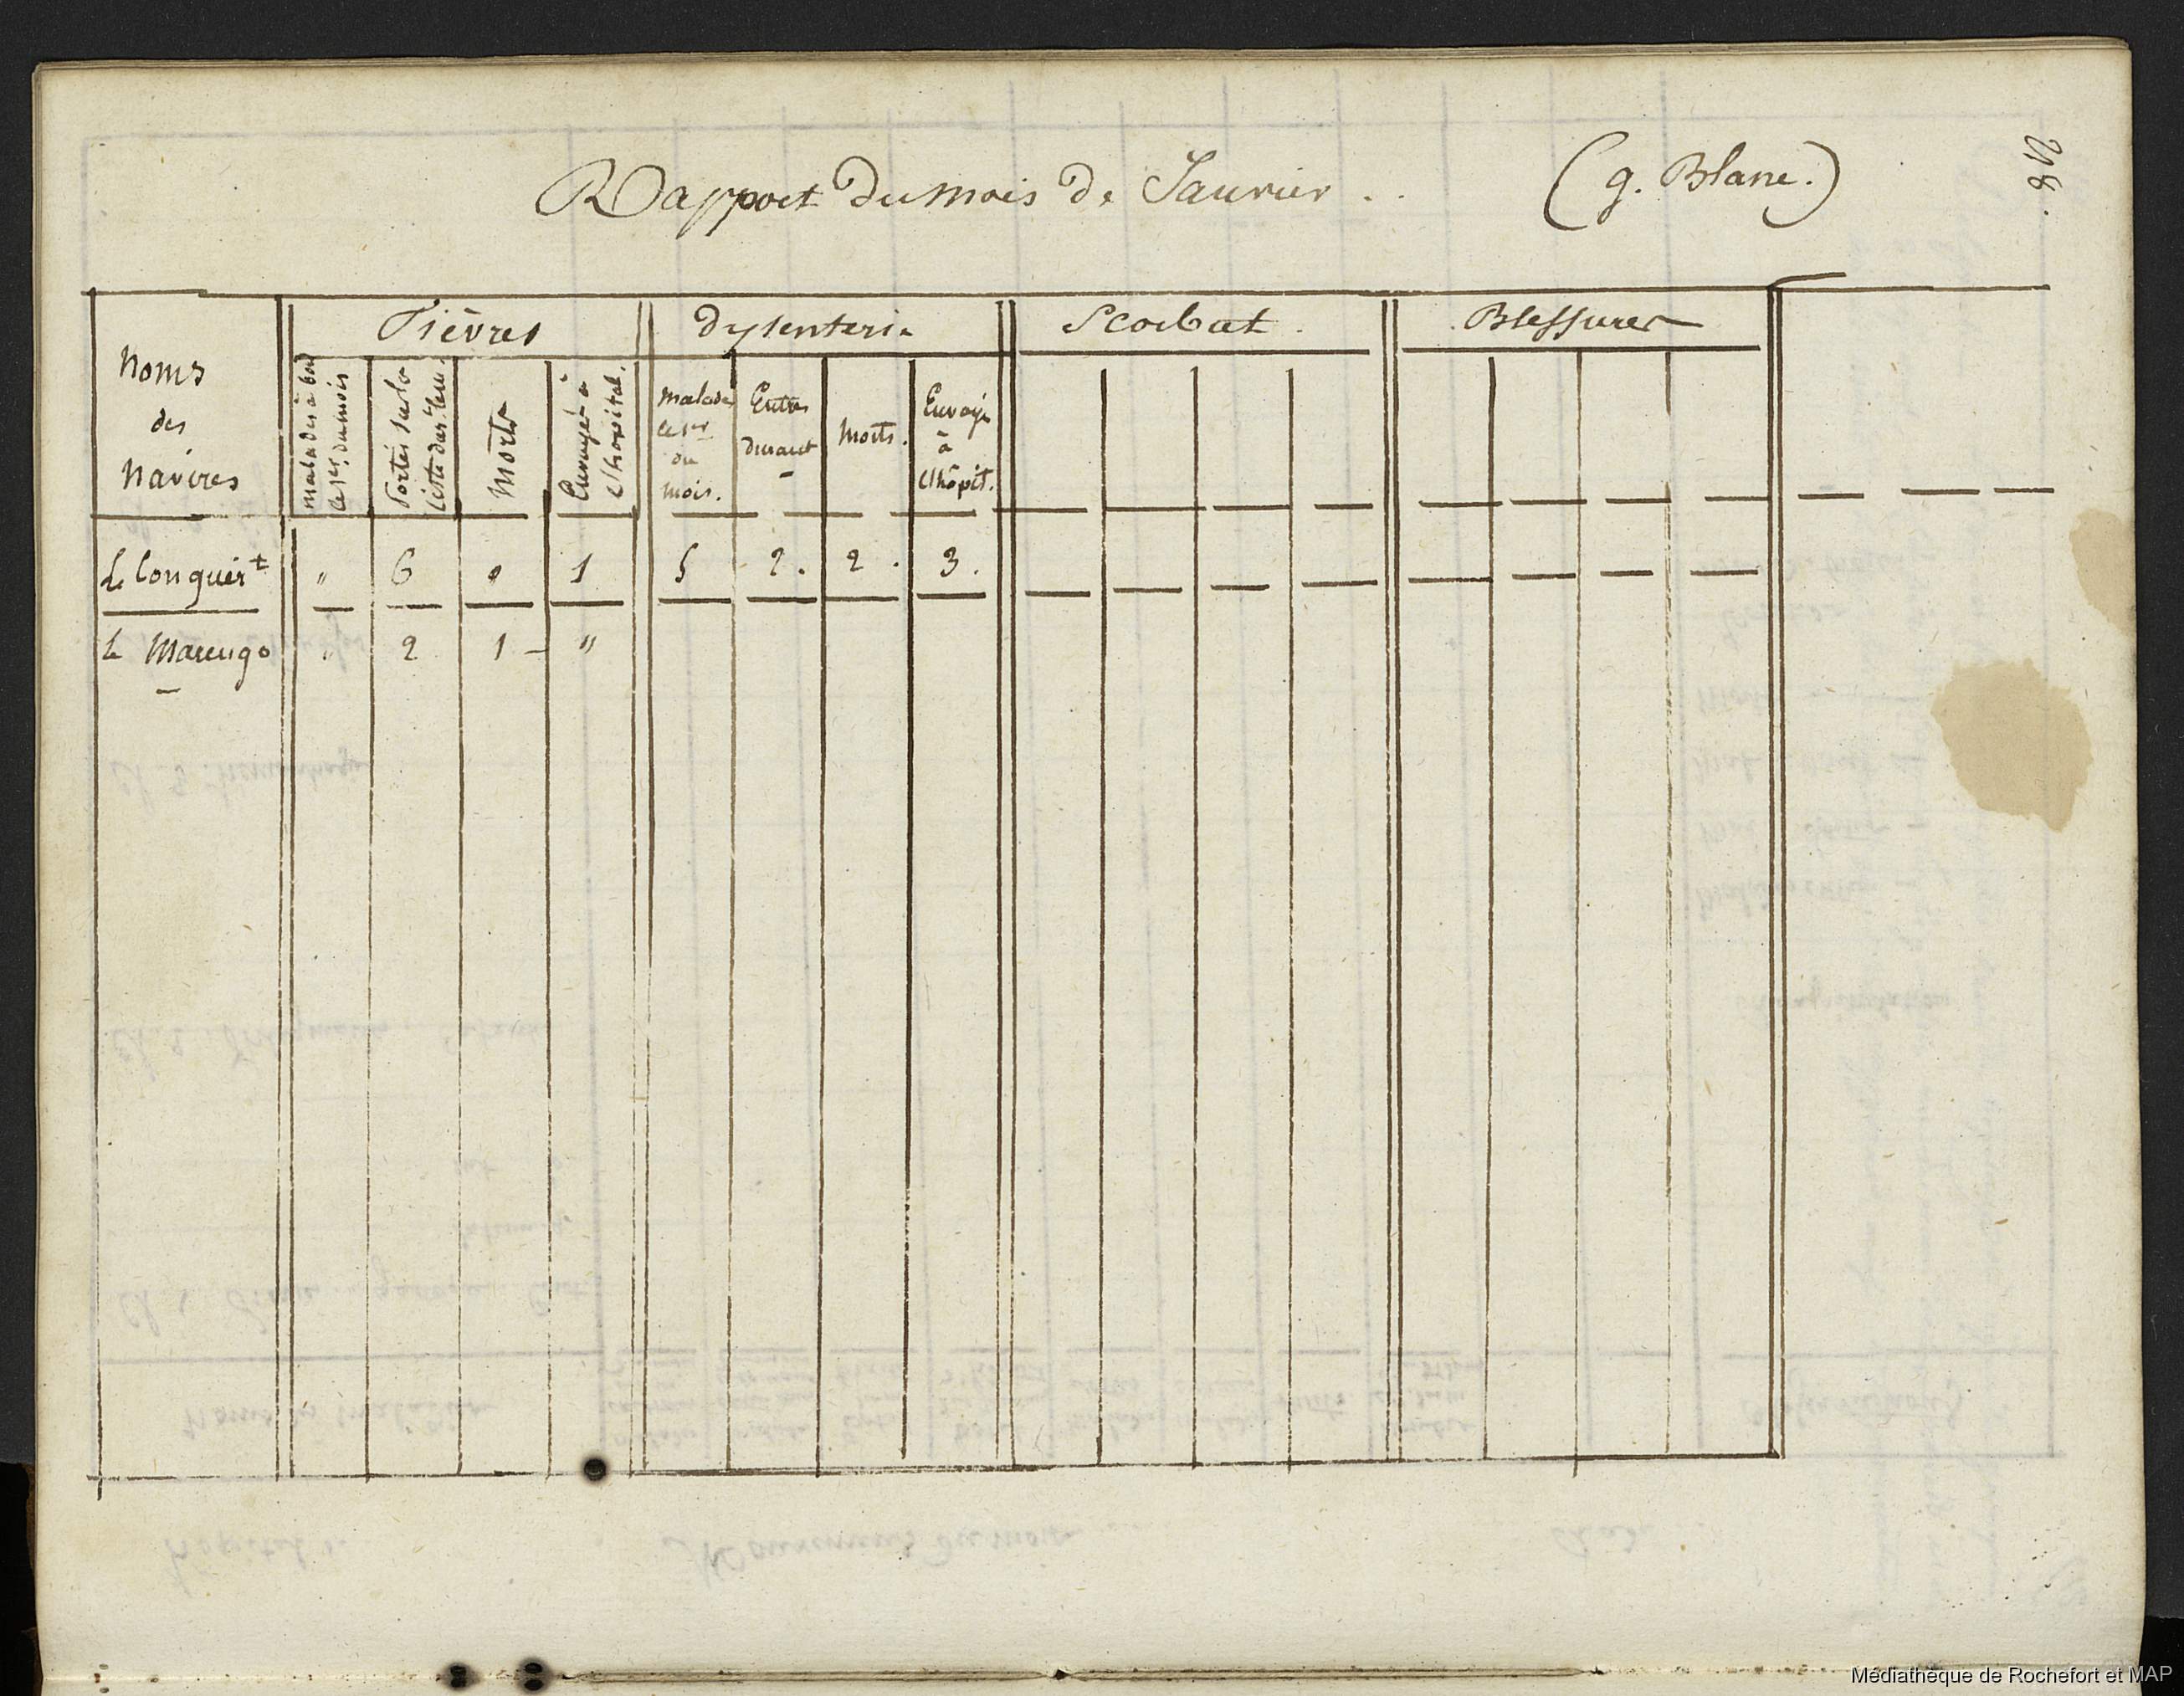 Rapport du mois de Janvier . . (g. Blane.)
218.
Noms des Navires
Fièvres
Dysenterie
Scorbut.
Blessures
malades à bord le 1er. du mois
Portés sur la liste dur. leur.
Morts
Envoyés à l'hopital.
malades le 1er du mois.
Entrés durant
Morts.
Envoyés à l'hôpit.
Le Conquért " 6 " 1 5 2. 2. 3.
Le Marengo " 2 1 - "
Médiathèque de Rochefort et MAP